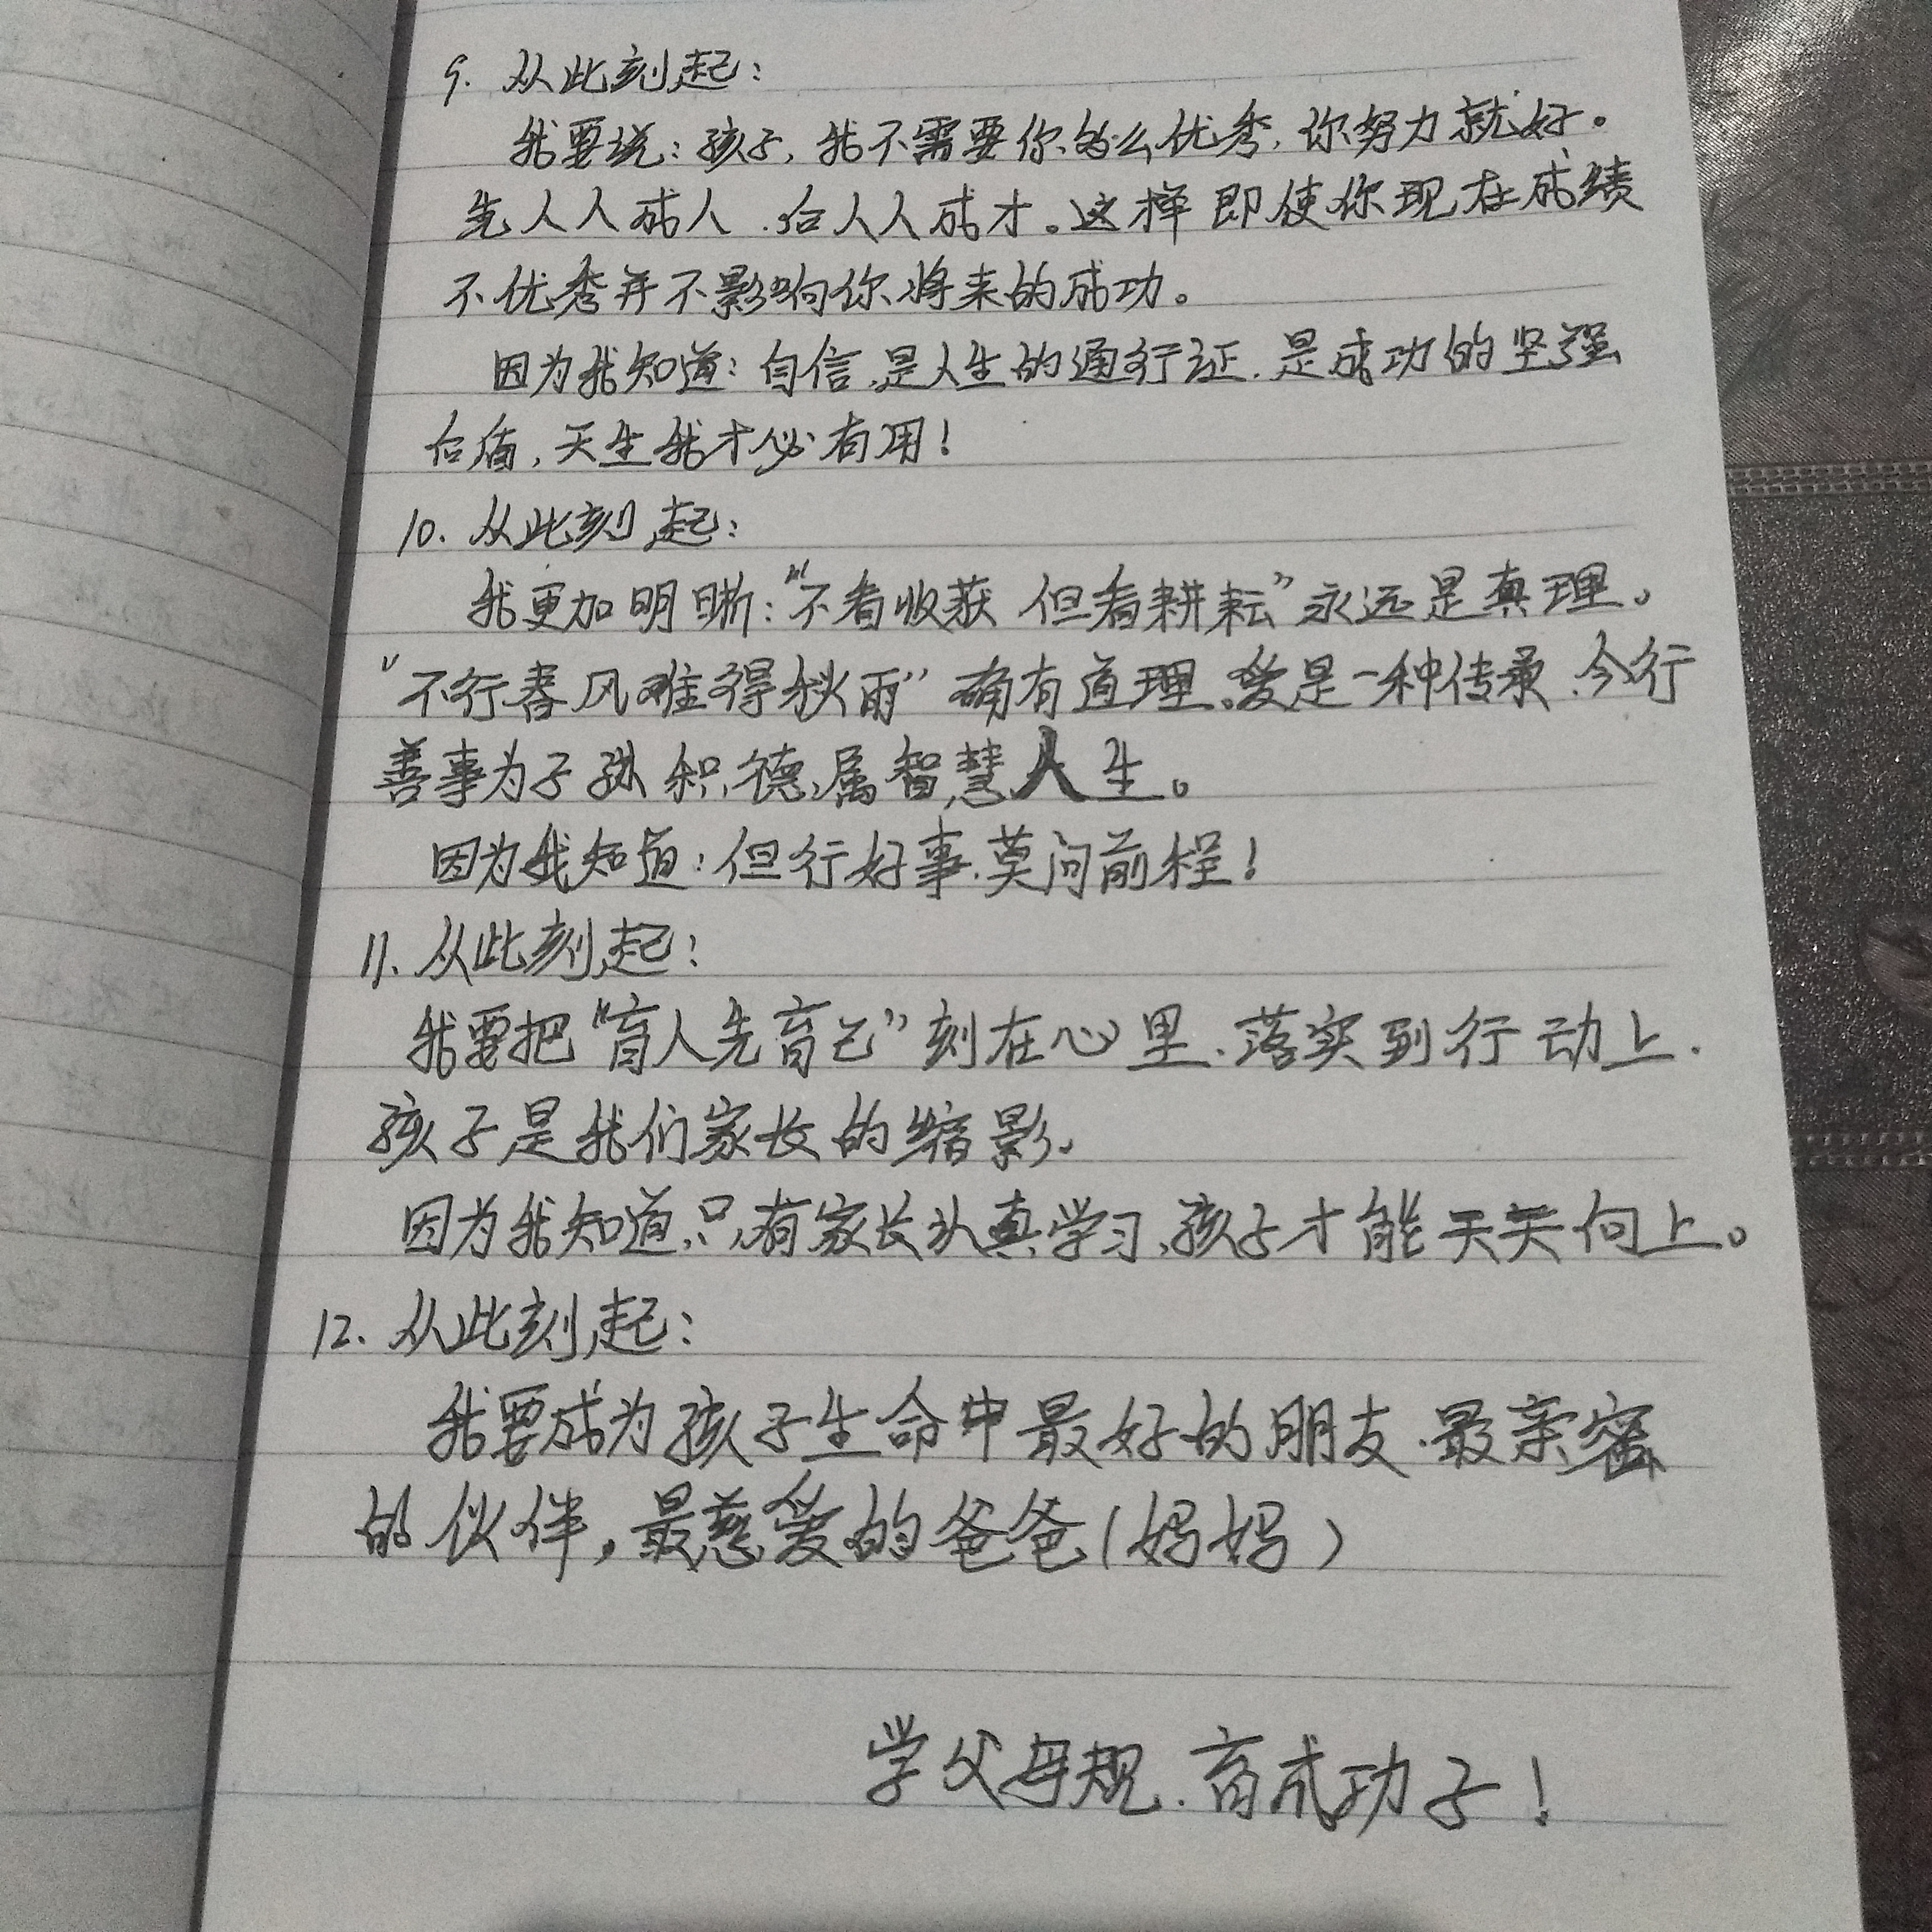 9. 从此刻起：
我要说：孩子，我不需要你多么优秀，你努力就好。
先人人成人，后人人成才。这样即使你现在成绩
不优秀并不影响你将来的成功。
因为我知道：自信，是人生的通行证，是成功的坚强
后盾，天生我才必有用！
10. 从此刻起：
我更加明晰：“不看收获 但看耕耘”永远是真理。
“不行春风难得秋雨”确有道理，爱是一种传承，今行
善事为子孙积德，属智慧人生。
因为我知道：但行好事，莫问前程！
11. 从此刻起：
我要把“育人先育己”刻在心里，落实到行动上，
孩子是我们家长的缩影。
因为我知道，只有家长认真学习，孩子才能天天向上。
12. 从此刻起：
我要成为孩子生命中最好的朋友，最亲密
的伙伴，最慈爱的爸爸（妈妈）
学父母规，育成功子！